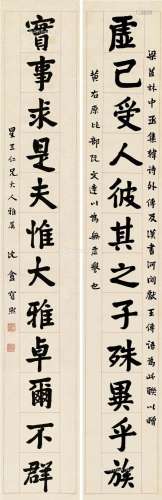 梁茝林中丞集韓詩外傳及漢書河間獻王傳語為此聯以贈
虛己受人彼其之子殊異乎族
右原比部阮文達以為無虛譽也
實事求是夫惟大雅卓爾不群
星三仁兄大人雅屬 沈盦寶熙